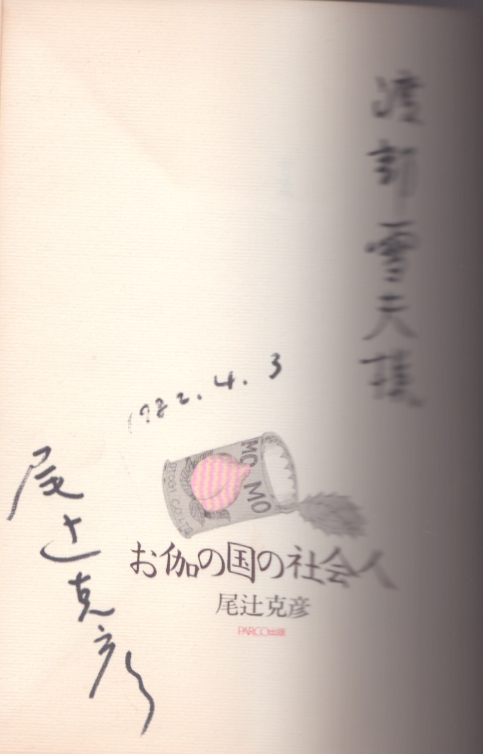 渡部雪夫様
1982.4.3
尾辻克彦
MOMO
お伽の国の社会人
尾辻克彦
PARCO出版